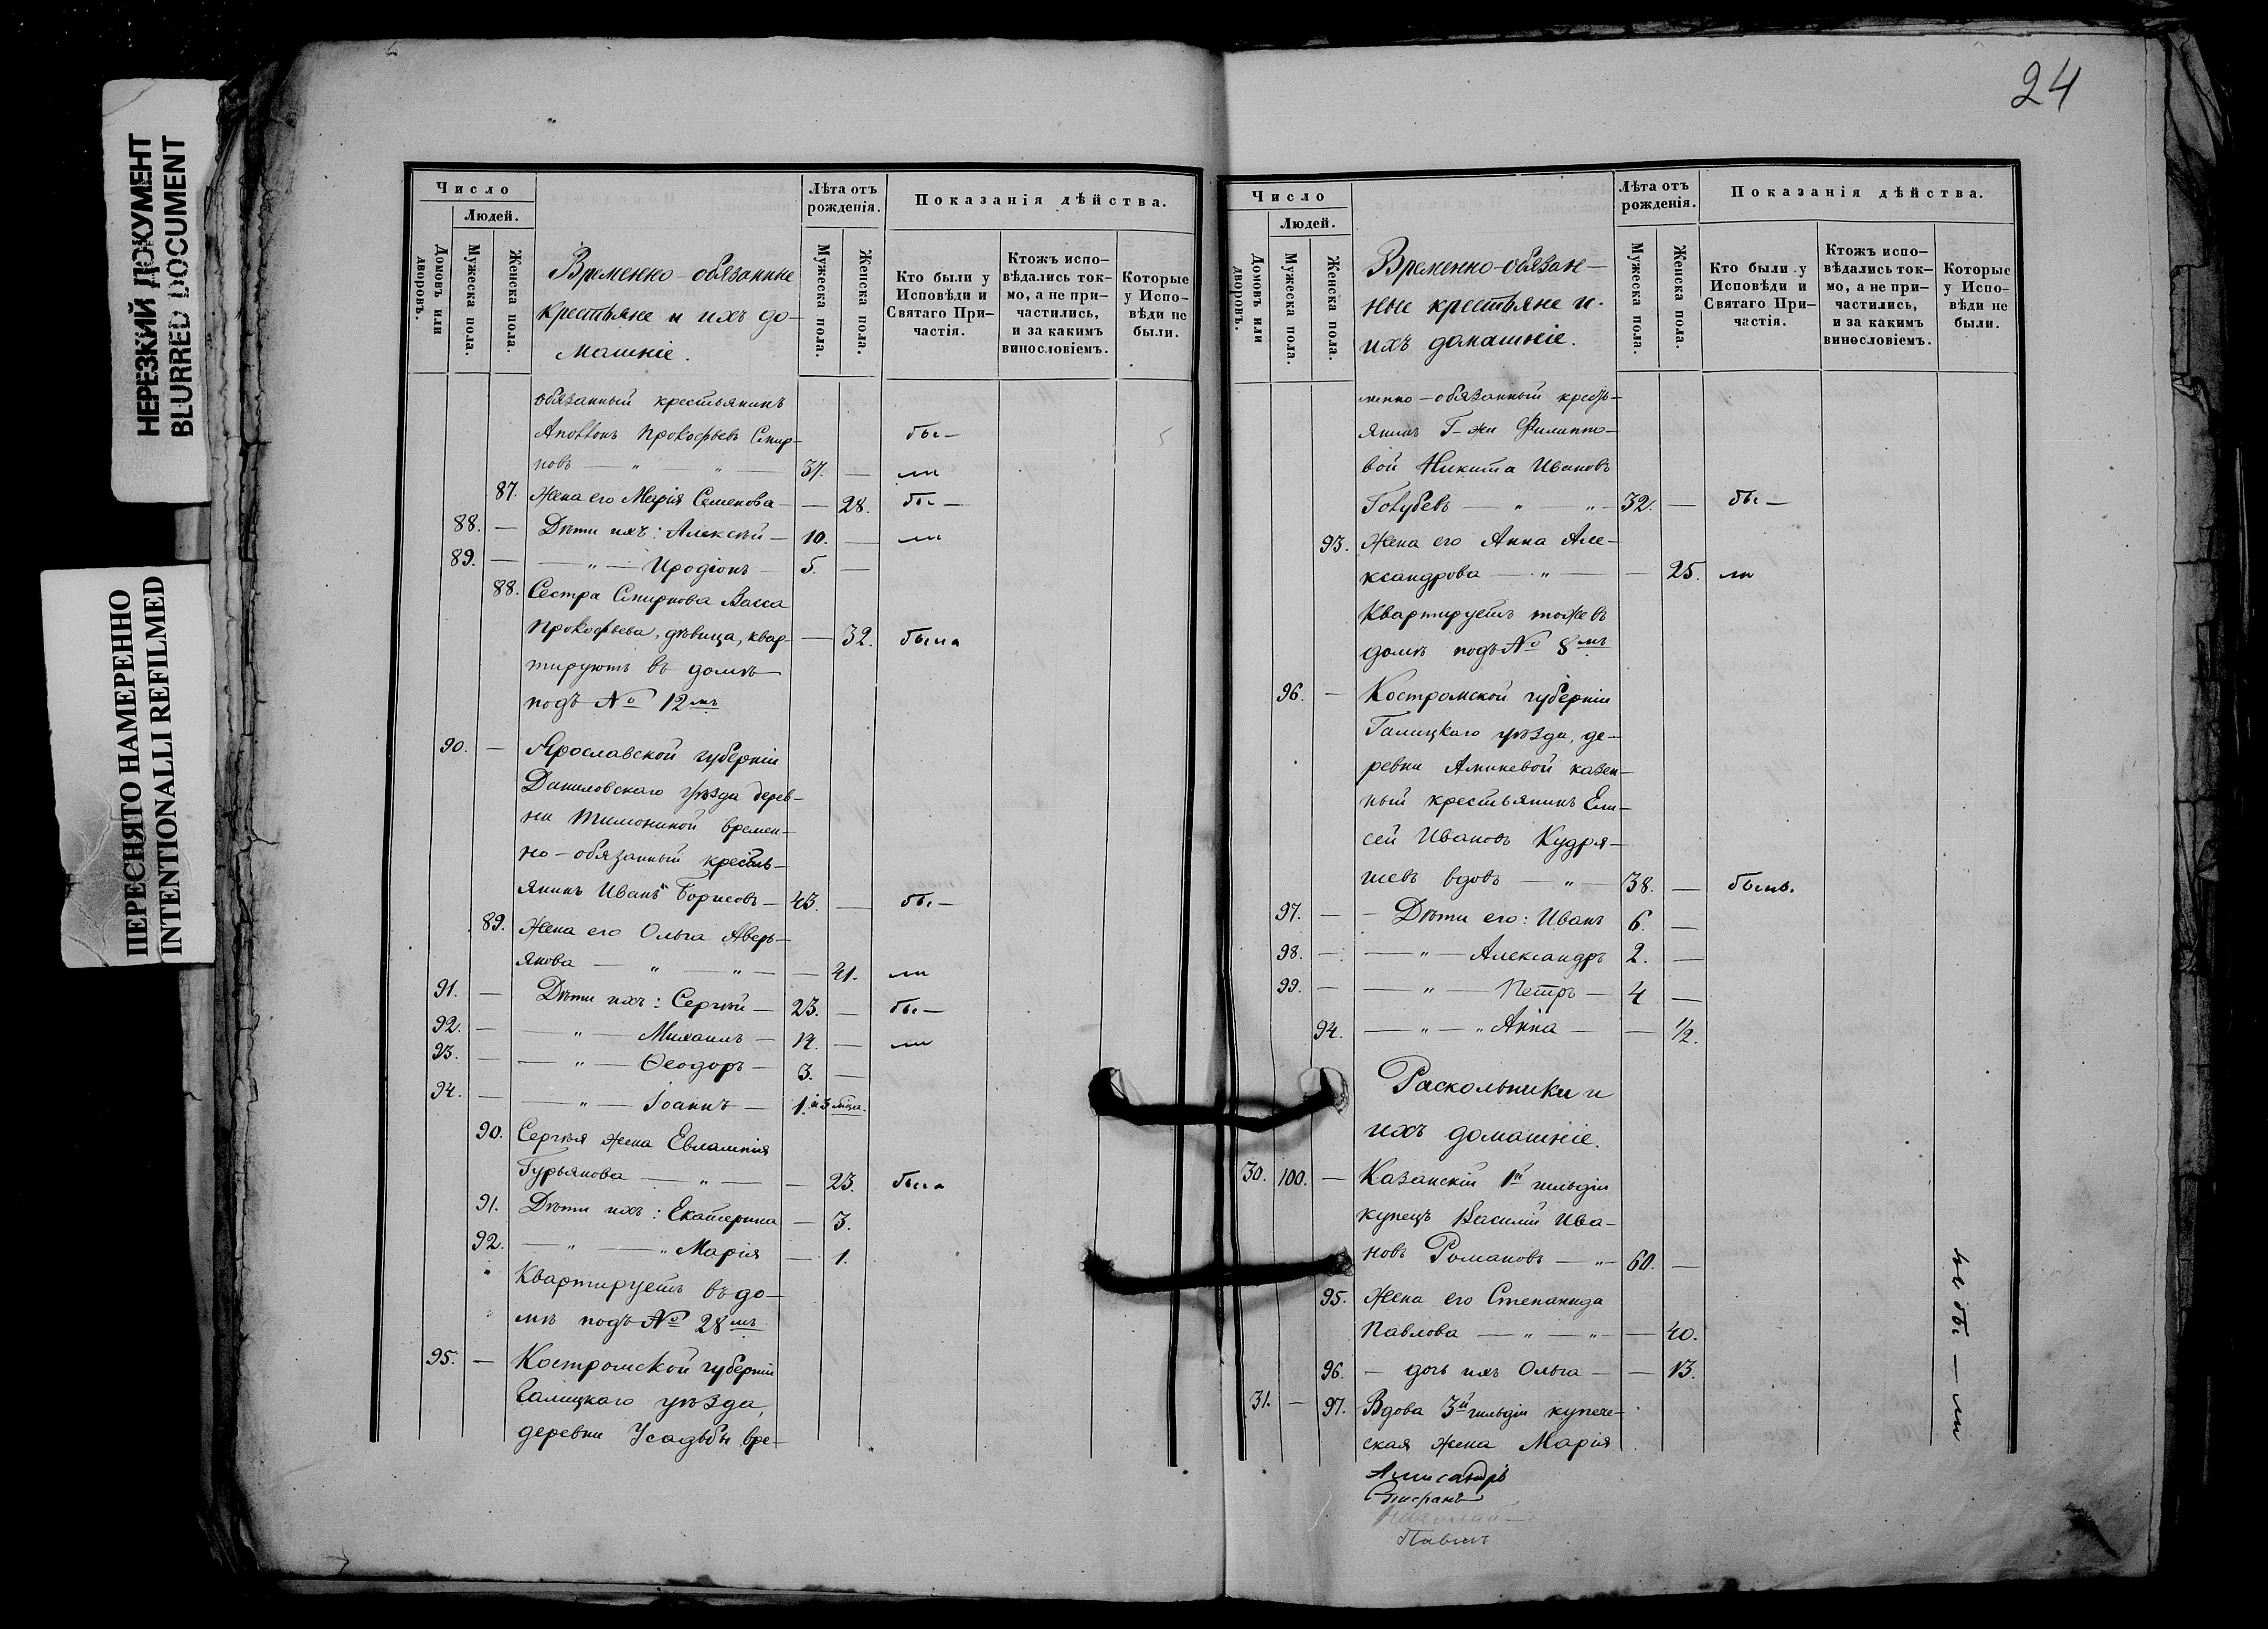 НЕРЕЗКИЙ ДОКУМЕНТ
BLURRED DOCUMENT
ПЕРЕСНЯТО НАМЕРЕННО
INTENTIONALLI REFILMED
Число
Людей.
Домовъ или дворовъ.
Мужеска пола.
Женска пола.
Временно-обязанные
крестьяне и ихъ до-
машніе.
Лѣта отъ рожденія.
Мужеска пола.
Женска пола.
Показанія дѣйства.
Кто были у Исповѣди и Святаго При-частія.
Ктожъ испо-вѣдались ток-мо, а не при-частились, и за какимъ винословіемъ.
Которые у Испо-вѣди не были.
обязанный крестьянинъ
Аполлонъ Прокофьевъ Смир- бы-
новъ — " — " — 37. — ли
87. Жена его Марія Семенова — — 28. бы —
88. — Дѣти ихъ: Алексѣй — 10. — ли
89. — — " — Иродіонъ — 5. —
88. Сестра Смирнова Васса
Прокофьева, дѣвица, квар- — 32. была
тируютъ въ домѣ
подъ № 12мъ
90. — Ярославской губерніи
Даниловскаго уѣзда дерев-
ни Тимониной времен-
но-обязанный кресть-
янинъ Иванъ Борисовъ — 43. — бы-
89. Жена его Ольга Аверь-
янова — " — " — — 41. ли
91. — Дѣти ихъ: Сергѣй — 23. — бы-
92. — — " — Михаилъ — 14. — ли
93. — — " — Ѳеодоръ — 3. —
94. — — " — Іоаннъ — 1. и 3 мѣся.
90. Сергѣя жена Евлампія
Гурьянова — " — — 23. была
91. Дѣти ихъ: Екатерина — 3.
92. — " — " Марія — 1.
Квартируетъ въ до-
мѣ подъ № 28мъ
95. — Костромской губерніи
Галицкаго уѣзда,
деревни Усадьбы вре-
24
Число
Людей.
Домовъ или дворовъ.
Мужеска пола.
Женска пола.
Временно-обязан-
ные крестьяне и
ихъ домашніе.
Лѣта отъ рожденія.
Мужеска пола.
Женска пола.
Показанія дѣйства.
Кто были у Исповѣди и Святаго При-частія.
Ктожъ испо-вѣдались ток-мо, а не при-частились, и за какимъ винословіемъ.
Которые у Испо-вѣди не были.
менно-обязанный кресть-
янинъ Г-жи Филиппо-
вой Никита Ивановъ
Голубевъ — " — " — 32. — бы —
93. Жена его Анна Але-
ксандрова — " — — 25. ли
Квартируетъ тоже въ
домѣ подъ № 8мъ
96. — Костромской губерніи
Галицкаго уѣзда, де-
ревни Аминевой казен-
ный крестьянинъ Ели-
сей Ивановъ Кудря-
шевъ вдовъ — " — 38. — былъ.
97. — — Дѣти его: Иванъ 6. —
98. — — " — Александръ 2. —
99. — — " — Петръ — 4 —
94. — " — " Анна — — 1/2.
Раскольники и
ихъ домашніе.
30. 100. — Казанскій 1й гильдіи
купецъ Василій Ива-
новъ Романовъ — " — 60. —
95. Жена его Степанида
Павлова — " — " — — 40.
96. — дочь ихъ Ольга — — 13.
31. — 97. Вдова 3й гильдіи купече-
ская жена Марія
не бы — ли
Стефанъ
Николай
Павелъ